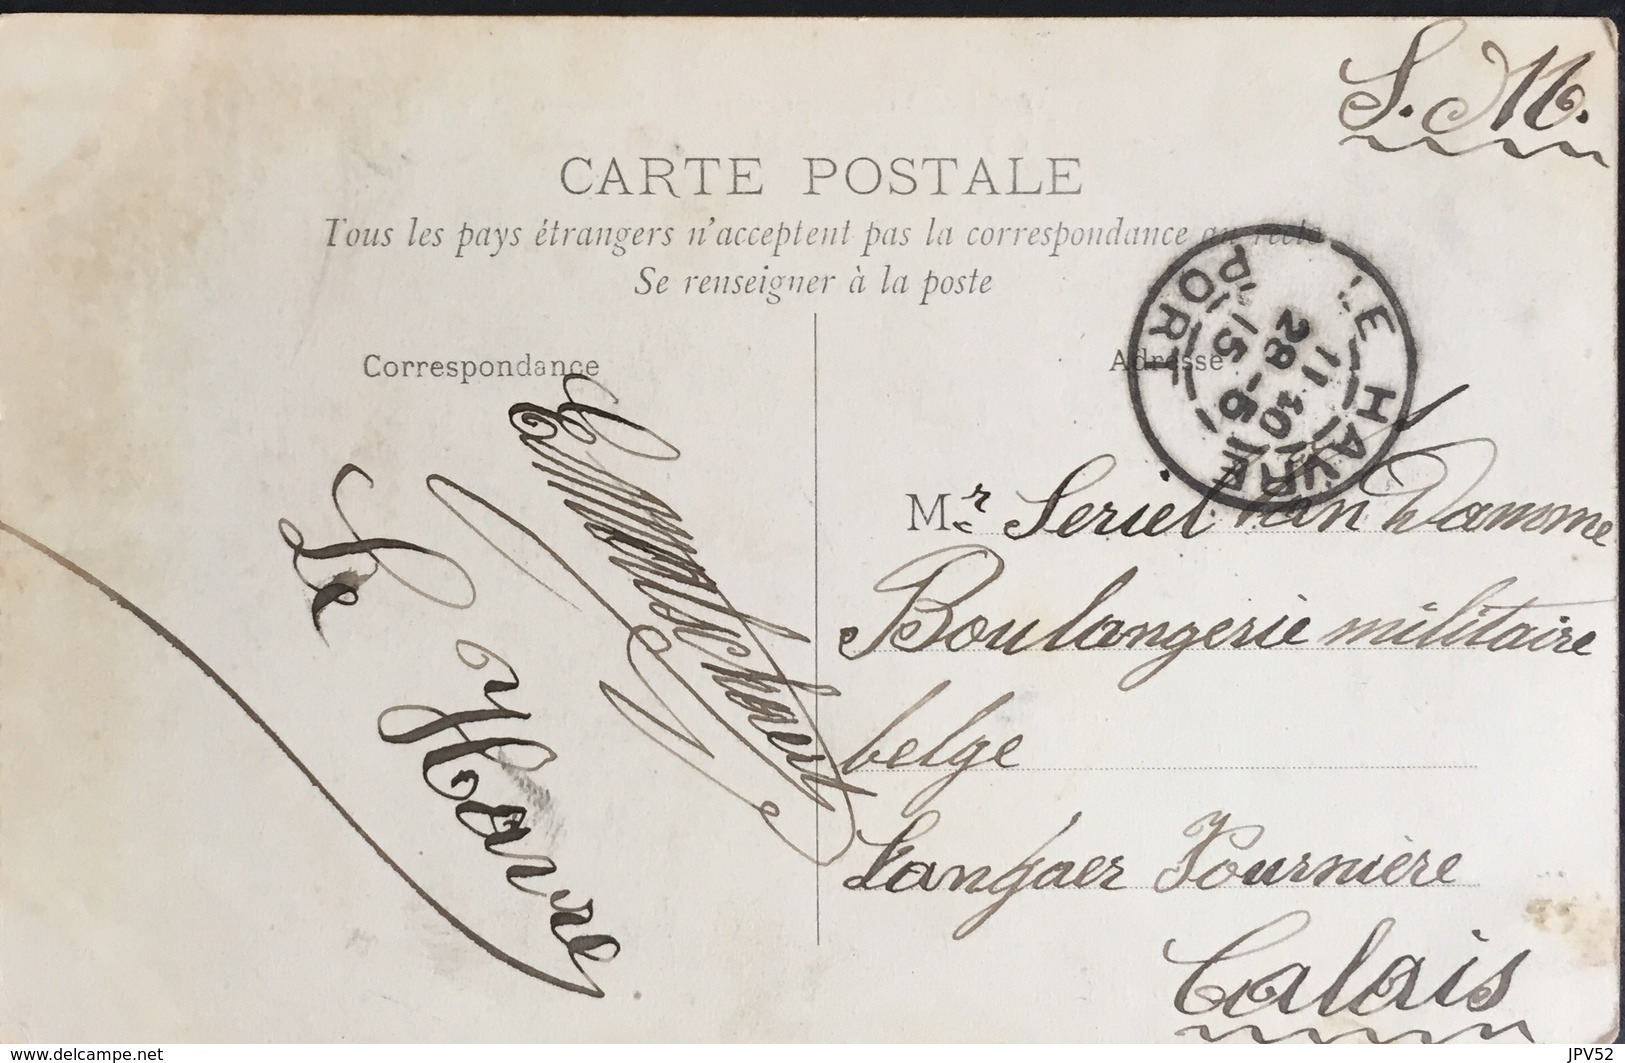 S. M.
CARTE POSTALE
Tous les pays étrangers n'acceptent pas la correspondance au recto
Se renseigner à la poste
Correspondance
Adresse
LE HAVRE
PORT
11 10
28 - 5
15
Le Havre
Mr. Seriel Van Damme
Boulangerie militaire
belge
Fournière
Calais
www.delcampe.net
JPV52